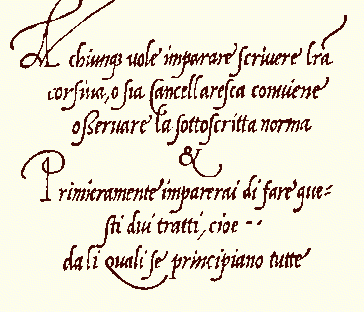 A chiunqꝫ uole imparare scriuere lrã
corsiua, o sia Cancellaresca conuiene
osseruare la sottoscritta norma
&
Primieramente imparerai di fare que=
sti dui tratti, cioe - -
da li quali se principiano tutte